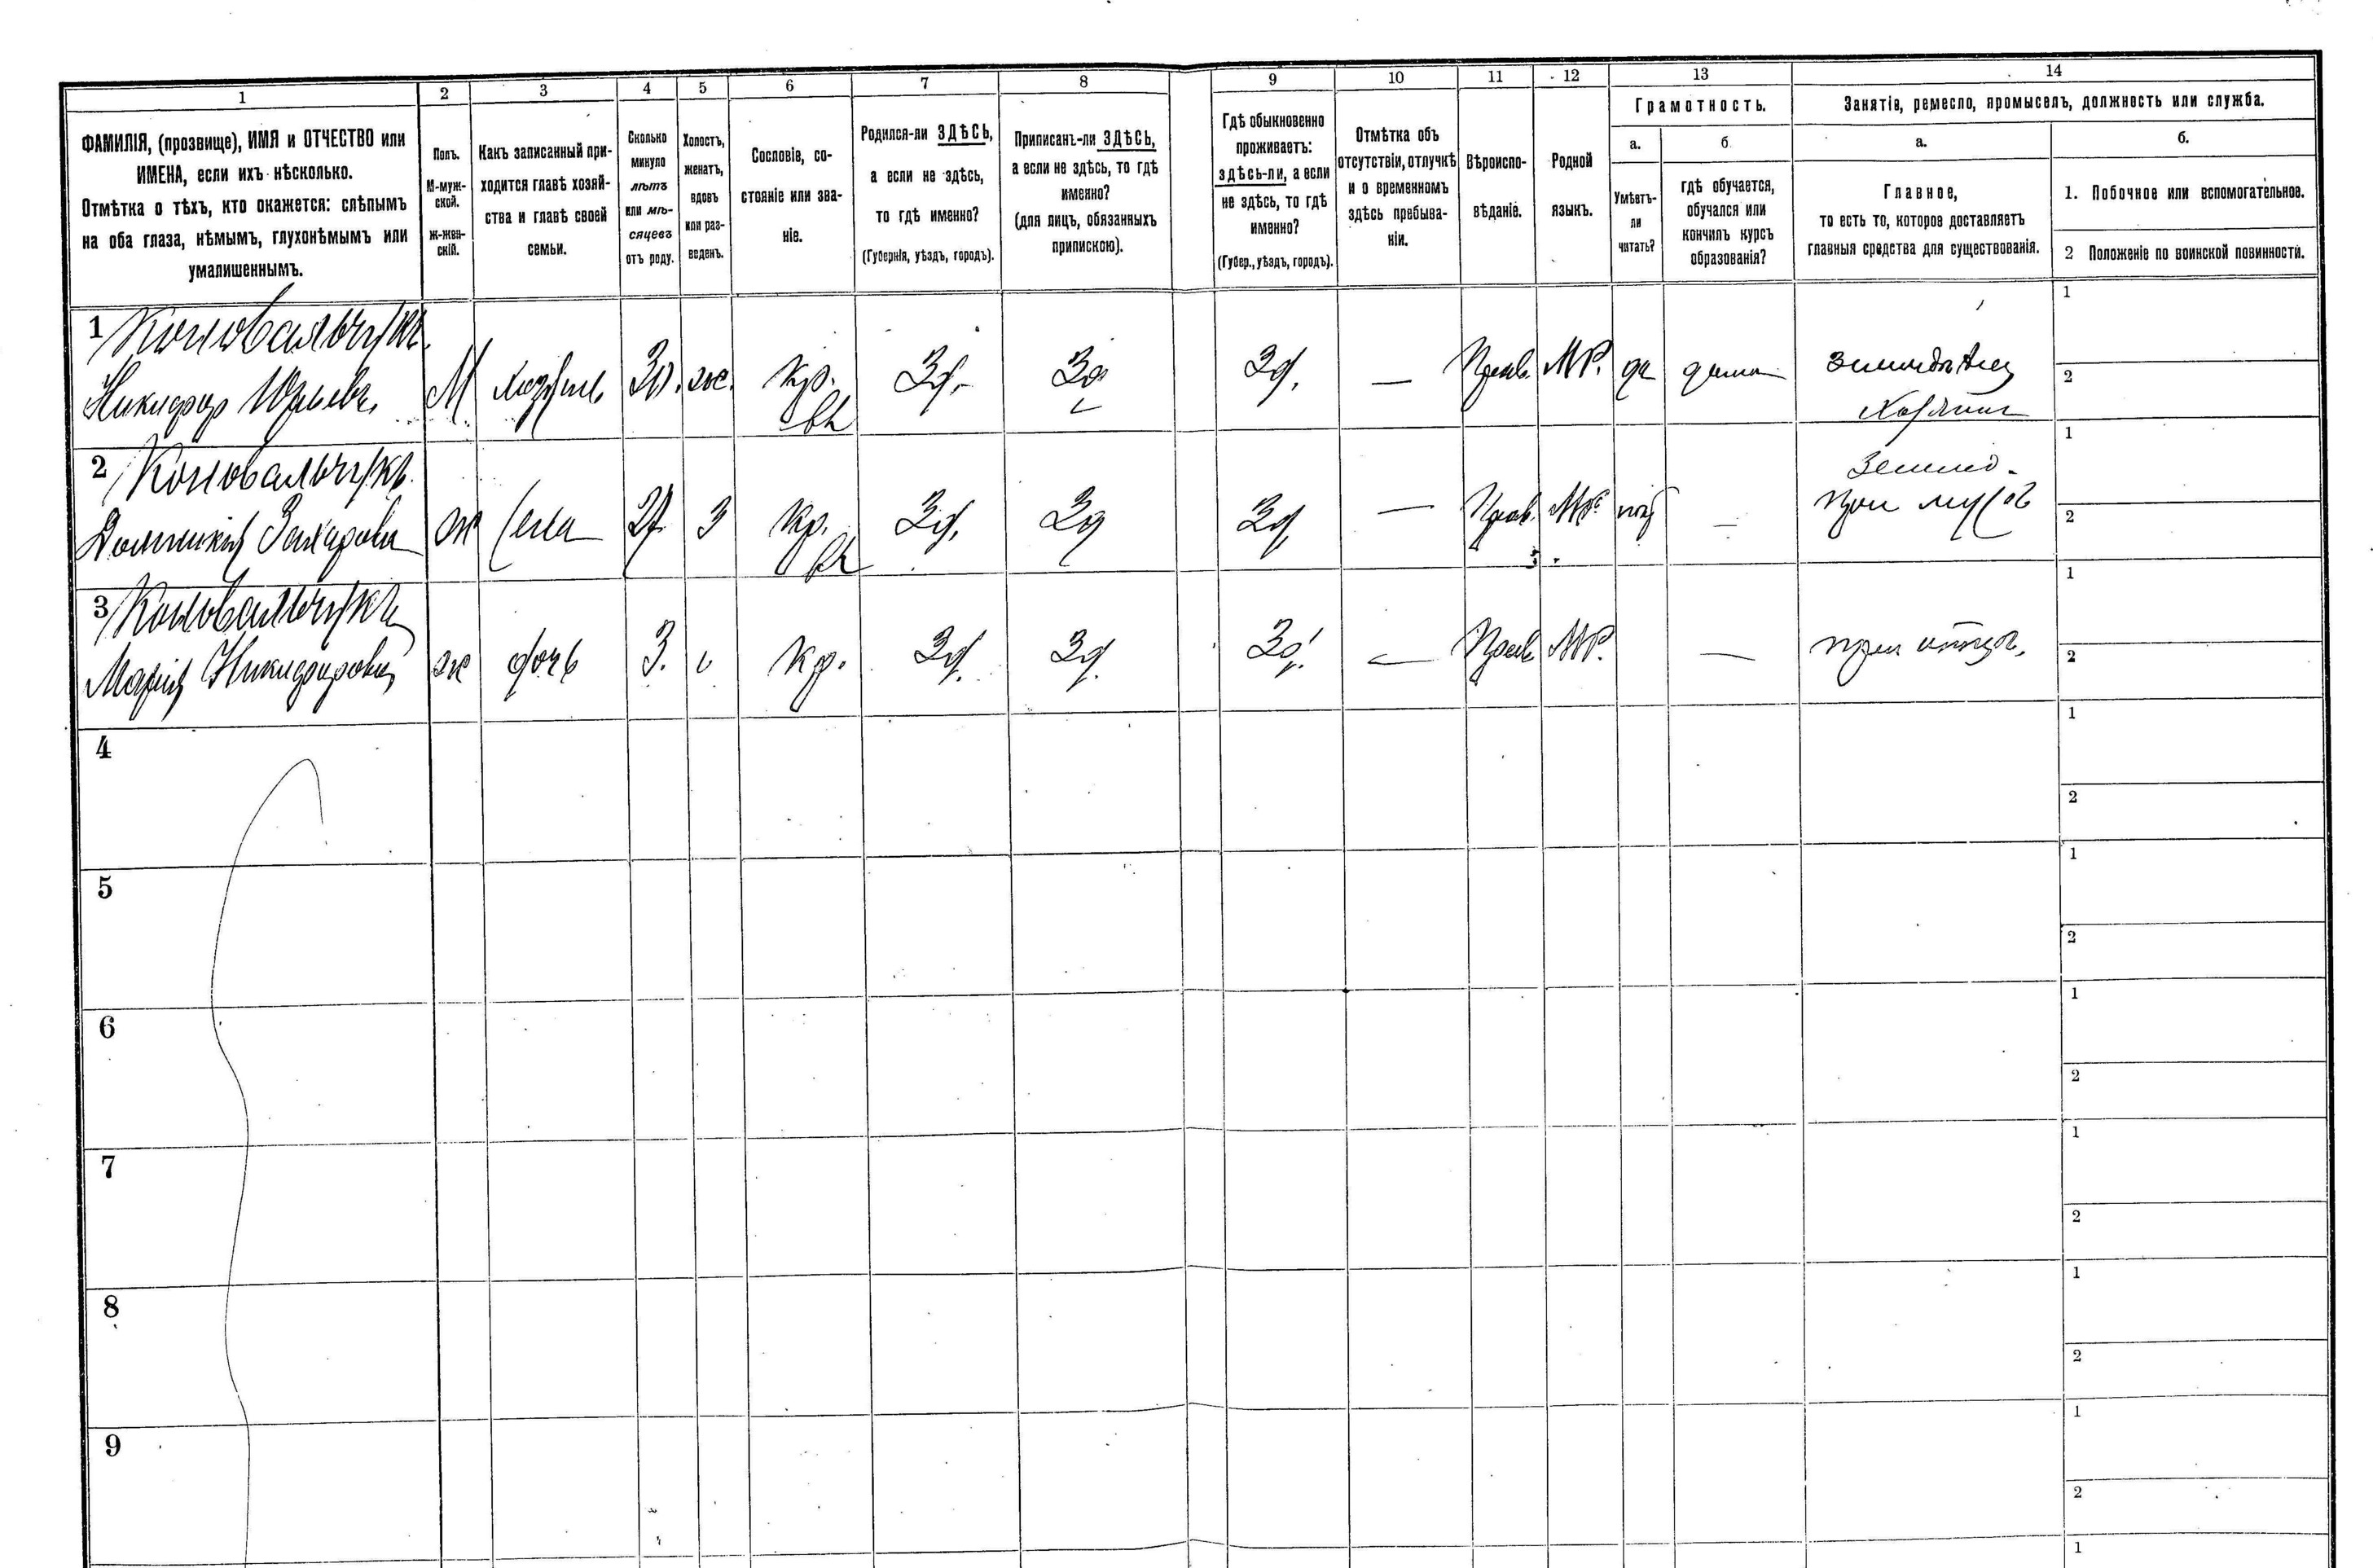 1
2
3
4
5
6
7
8
9
10
11
12
13
14
ФАМИЛІЯ, (прозвище), ИМЯ и ОТЧЕСТВО или
ИМЕНА, если ихъ нѣсколько.
Отмѣтка о тѣхъ, кто окажется: слѣпымъ
на оба глаза, нѣмымъ, глухонѣмымъ или
умалишеннымъ.
Полъ.
М-муж-
ской.
Ж-жен-
скій.
Какъ записанный при-
ходится главѣ хозяй-
ства и главѣ своей
семьи.
Сколько
минуло
лѣтъ
или мѣ-
сяцевъ
отъ роду.
Холостъ,
женатъ,
вдовъ
или раз-
веденъ.
Сословіе, со-
стояніе или зва-
ніе.
Родился-ли ЗДѢСЬ,
а если не здѣсь,
то гдѣ именно?
(Губернія, уѣздъ, городъ).
Приписанъ-ли ЗДѢСЬ,
а если не здѣсь, то гдѣ
именно?
(для лицъ, обязанныхъ
припискою).
Гдѣ обыкновенно
проживаетъ:
здѣсь-ли, а если
не здѣсь, то гдѣ
именно?
(Губер., уѣздъ, городъ).
Отмѣтка объ
отсутствіи, отлучкѣ
и о временномъ
здѣсь пребыва-
ніи.
Вѣроиспо-
вѣданіе.
Родной
языкъ.
Грамотность.
а.
б.
Умѣетъ-
ли
читать?
гдѣ обучается,
обучался или
кончилъ курсъ
образованія?
Занятіе, ремесло, промыселъ, должность или служба.
а.
б.
Главное,
то есть то, которое доставляетъ
главныя средства для существованія.
1. Побочное или вспомогательное.
2 Положеніе по воинской повинности.
1 Коновальчукъ
Никифор Юрьевъ М хозяинъ 30. ж. кр. Зд. Зд Зд. — Прав. МР. да дома земледѣлец
хозяинъ
1
2
2 Коновальчукъ
Домникія Захарова ж жена 27 З кр. Зд. Зд Зд. — Прав. МР. нѣт — Землед.
при мужѣ
1
2
3 Коновальчукъ
Марія Никифорова ж дочь 3. кр. Зд. Зд. Зд. — Прав. МР. — при отцѣ.
1
2
4
1
2
5
1
2
6
1
2
7
1
2
8
1
2
9
1
2
1